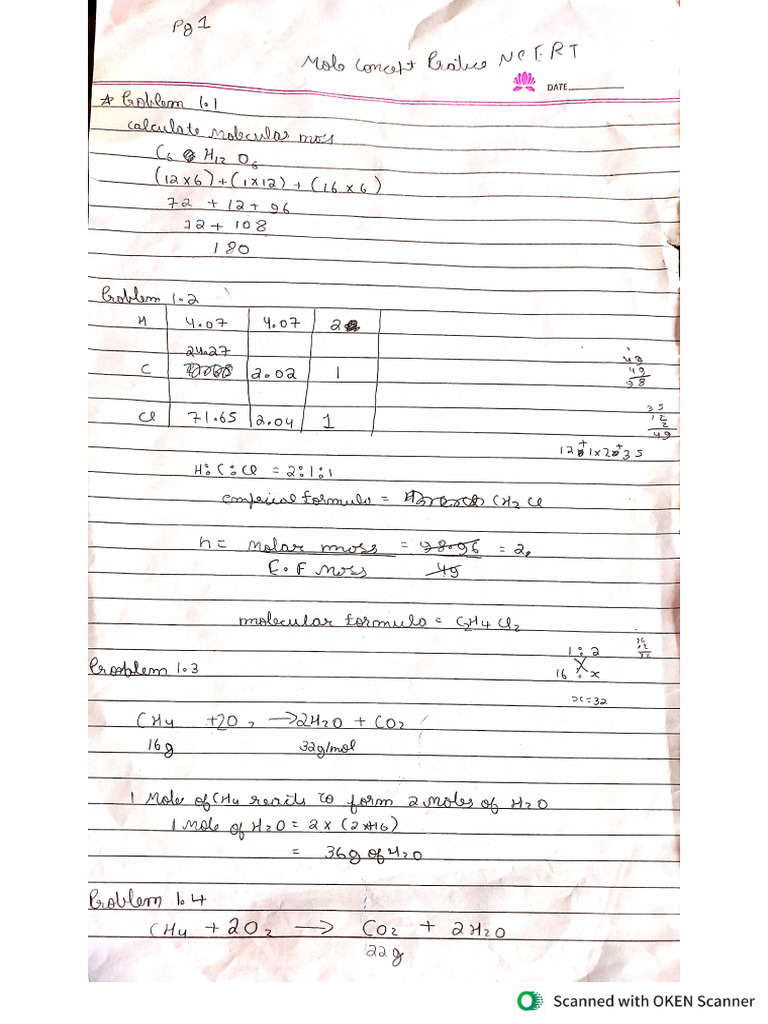 Pg 1
Mole Concept Pratice NCERT
DATE
Problem 1.1
calculate molecular mass
C6 H12 O6
(12×6)+(1×12)+(16×6)
72 +12+ 96
72+ 108
180
Problem 1.2
H 4.07 4.07 2
24.27
C 2.02 1
Cl 71.65 2.04 1
49
49
98
35
12
2
49
H:C:Cl = 2:1:1
empirical formula = CH2 Cl
n = molar mass = 98.96 = 2,
E.F Mass 49
molecular formula = C2H4 Cl2
1 : 2
16 : x
x=32
Problem 1.3
CH4 +2O2 → 2H2O + CO2
16g 32g/mol
1 Mole of CH4 reacts to form 2 moles of H2O
1 Mole of H2O = 2 × (2+16)
= 36g of H2O
Problem 1.4
CH4 + 2O2 → CO2 + 2H2O
22g
Scanned with OKEN Scanner